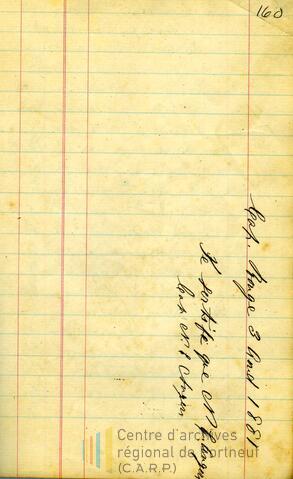 160
Cap Rouge 3 Aout 1881
Je certifie que N P
Cap N P
Centre d'archives
régional de Portneuf
(C.A.R.P.)